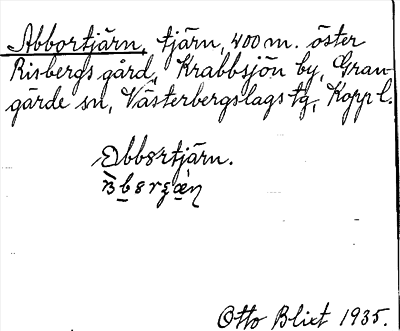 Abbortjärn, tjärn, 400 m. öster
Risbergs gård, Krabbsjön by, Gran-
gärde sn, Västerbergslags tg, Kopp l.
Abbortjärn.
Otto Blixt 1935.